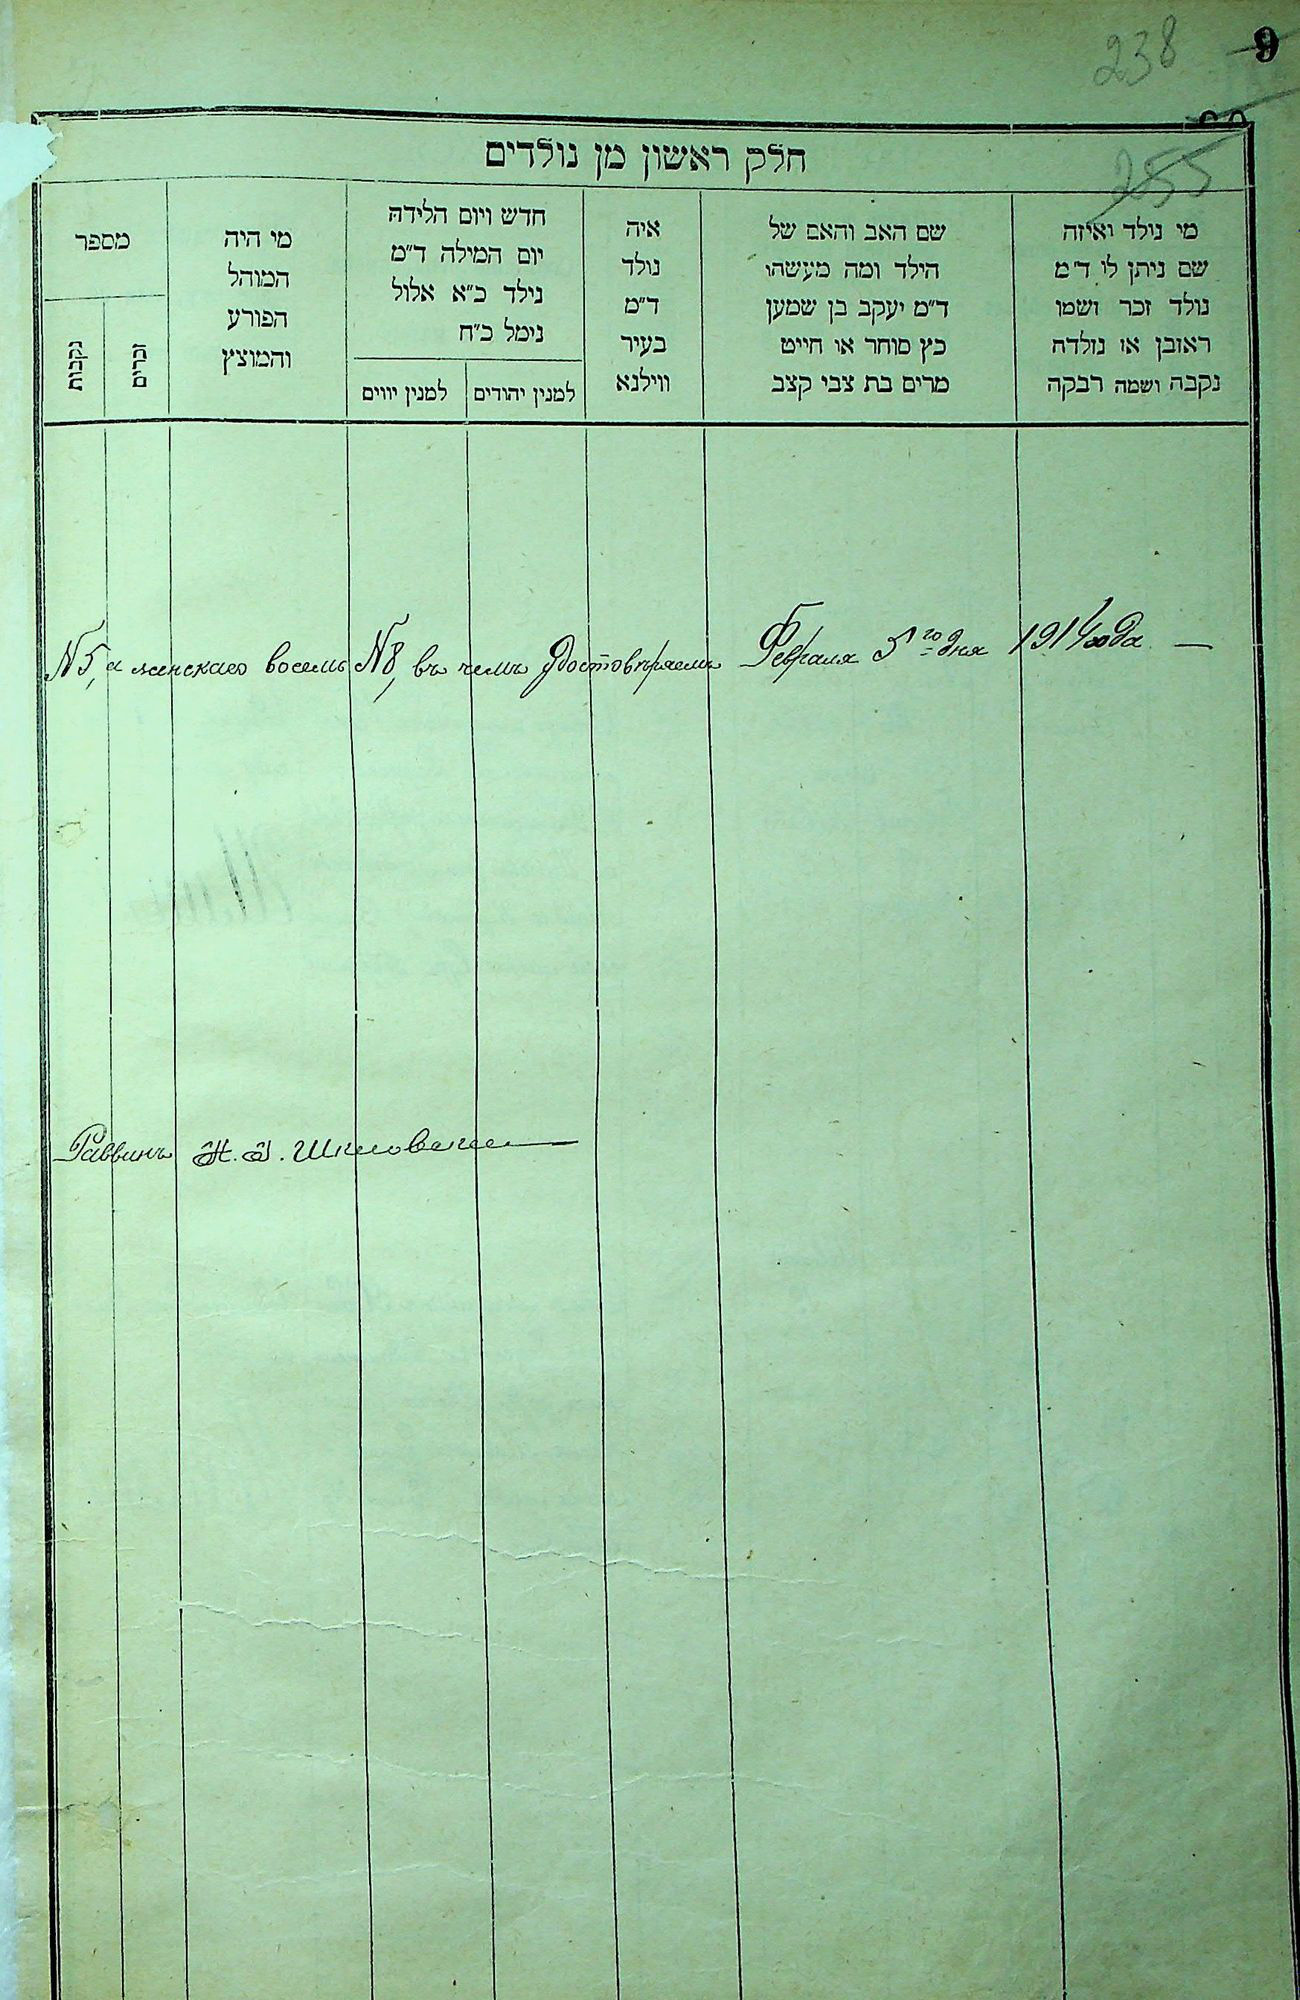 238
9
255
חלק ראשון מן נולדים
מי נולד ואיזה
שם ניתן לו ד״מ
נולד זכר ושמו
ראובן או נולדה
נקבה ושמה רבקה
שם האב והאם של
הילד ומה מעשהו
ד״מ יעקב בן שמעון
כץ סוחר או חייט
מרים בת צבי קצב
איה
נולד
ד״מ
בעיר
ווילנא
חדש ויום הלידה
יום המילה ד״מ
נילד כ״א אלול
נימל כ״ח
למנין יהודים
למנין יווים
מי היה
המוהל
הפורע
והמוצץ
מספר
זכרים
נקבות
№5, а женскаго восемь №8, въ чемъ удостовѣряемъ Февраля 5го дня 1914 года —
Раввинъ